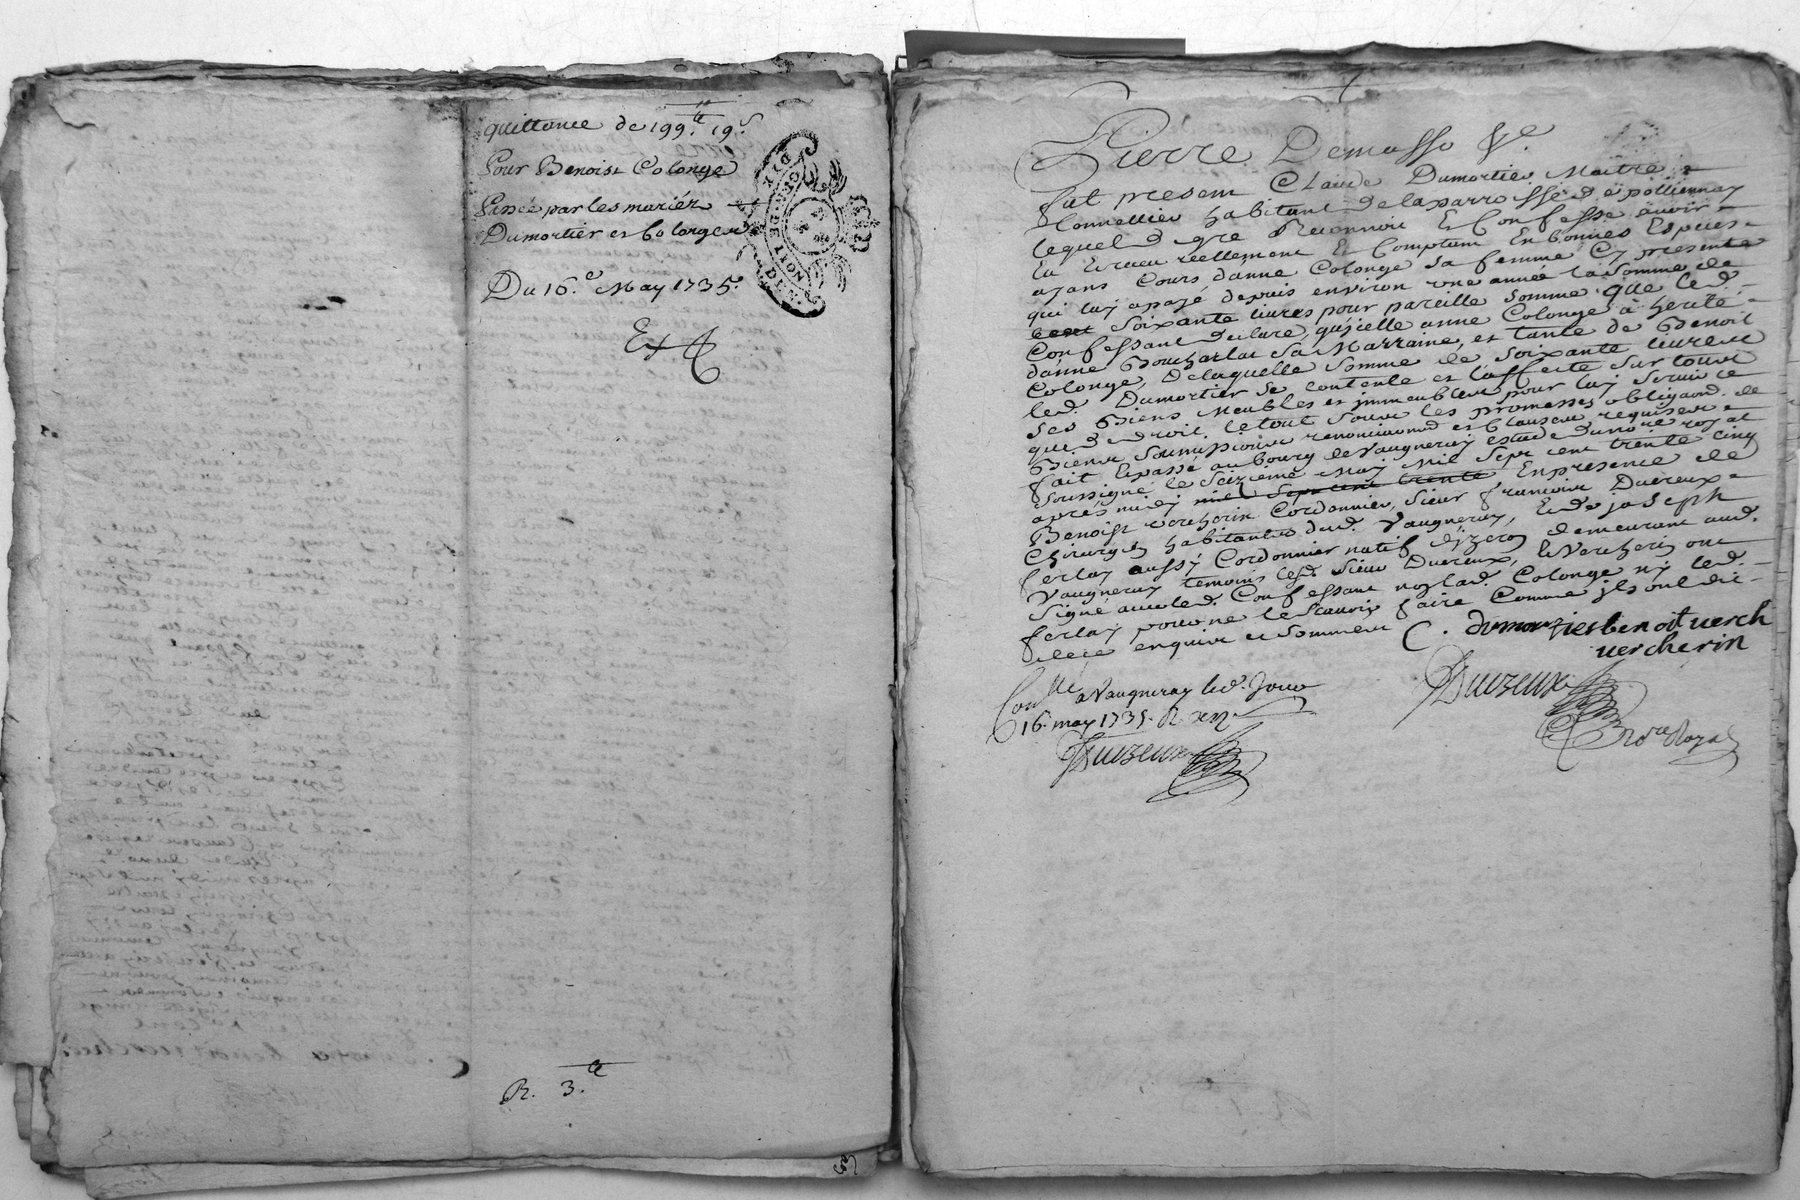 quittance de 199.ᵗᵗ 19.ˢ
Pour Benoist Colonge
Passée par les mariéz
Dumortier et Colonge
Du 16.ᵉ May 1735.
Ex
GEN. DE LYON
R. 3.ᵗᵗ
Pierre Demasso &ᵉ.
fut present Claude Dumortier Maitre
tonnellier habitant de la parroisse de pollienay
lequel de gre Reconnoit Et Confesse avoir
Eu Et receu reellement Et Comptant En bonnes Especes
ayans Cours d'anne Colonge sa femme Cy presente
qui luy a payé depuis environ une année la somme de
soixante livres pour pareille somme que led.
Confessant declare, qu'icelle anne Colonge à herité
d'anne Boucharlat sa Marraine, et tante de Benoit
Colonge, De laquelle somme de soixante livres
led. Dumortier se contente et l'affecte sur tous
ses Biens Meubles et immeubles pour luy servir ce
que de droit. le tout sous les promesses obligaõns de
Biens soumissions renonciaons et clauses requises
fait et passé au bourg de Vaugneray estude du nore royal
soussigné le seizième may Mil sept cent trente cinq
après midy mil sept cent trente En presence de
Benoist vercherin Cordonnier, sieur françois Duvreux
Chirurgien habitants dud. Vaugneray, Et de joseph
ferlay aussy Cordonnier natif d'izeron demeurant aud.
Vaugneray temoins lesd. sieur Duvreux, et Vercherin ont
signé avec led. Confessant non lad. Colonge ny led.
ferlay pour ne le scavoir faire Comme ils ont dit
de ce enquis et sommés
C. dumortier benoit verch
vercherin
Duvreux
nore Royal
Conᵗˡᵉ a Vaugneray led. Jour
16. may 1735. R.
Duvreux